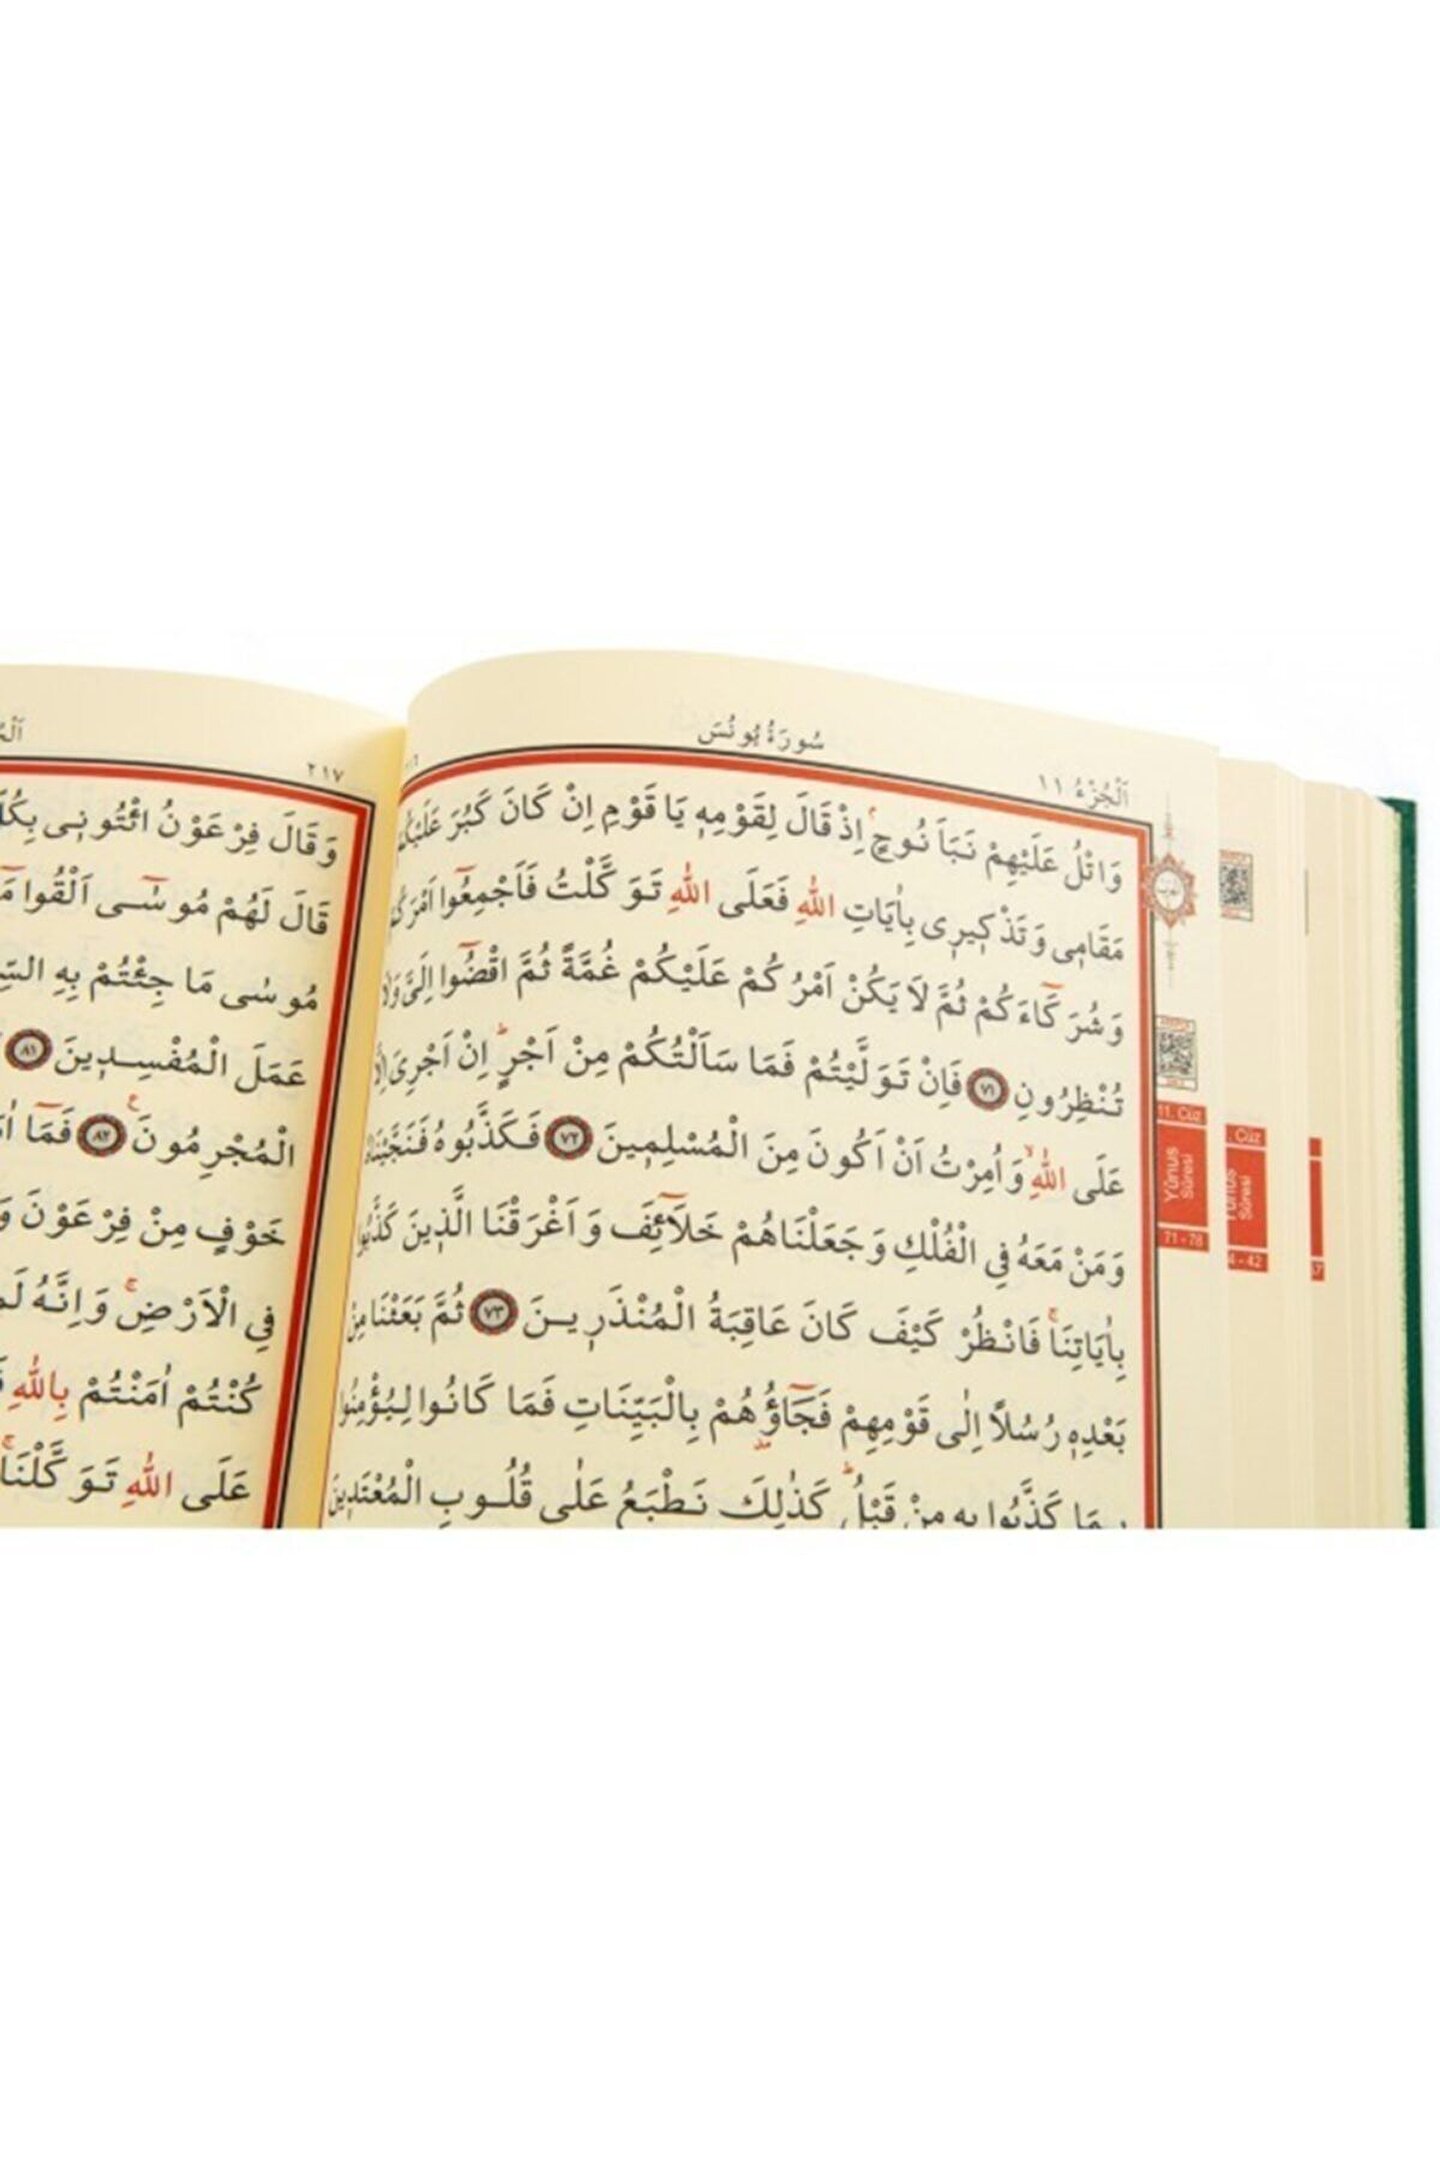 سُورَةُ يُونُسَ
اَلْجُزْءُ ١١
وَاتْلُ عَلَيْهِمْ نَبَاَ نُوحٍۢ اِذْ قَالَ لِقَوْمِه۪ يَا قَوْمِ اِنْ كَانَ كَبُرَ
مَقَام۪ى وَتَذْك۪ير۪ى بِاٰيَاتِ اللّٰهِ فَعَلَى اللّٰهِ تَوَكَّلْتُ فَاَجْمِعُٓوا
وَشُرَكَٓاءَكُمْ ثُمَّ لَا يَكُنْ اَمْرُكُمْ عَلَيْكُمْ غُمَّةً ثُمَّ اقْضُٓوا اِلَىَّ
تُنْظِرُونِ ٧١ فَاِنْ تَوَلَّيْتُمْ فَمَا سَاَلْتُكُمْ مِنْ اَجْرٍۜ اِنْ اَجْرِىَ
عَلَى اللّٰهِۙ وَاُمِرْتُ اَنْ اَكُونَ مِنَ الْمُسْلِم۪ينَ ٧٢ فَكَذَّبُوهُ
وَمَنْ مَعَهُ فِى الْفُلْكِ وَجَعَلْنَاهُمْ خَلَٓائِفَ وَاَغْرَقْنَا الَّذ۪ينَ كَذَّبُوا
بِاٰيَاتِنَاۚ فَانْظُرْ كَيْفَ كَانَ عَاقِبَةُ الْمُنْذَر۪ينَ ٧٣ ثُمَّ بَعَثْنَا مِنْ
بَعْدِه۪ رُسُلًا اِلٰى قَوْمِهِمْ فَجَٓاؤُ۫هُمْ بِالْبَيِّنَاتِ فَمَا كَانُوا لِيُؤْمِنُوا
بِمَا كَذَّبُوا بِه۪ مِنْ قَبْلُۜ كَذٰلِكَ نَطْبَعُ عَلٰى قُلُوبِ الْمُعْتَد۪ينَ
11. Cüz
Yûnus
Sûresi
71 - 78
Cüz
Sûresi
- 42
٢١٧
وَقَالَ فِرْعَوْنُ ائْتُون۪ى
قَالَ لَهُمْ مُوسٰٓى اَلْقُوا
مُوسٰى مَا جِئْتُمْ بِهِ
عَمَلَ الْمُفْسِد۪ينَ ٨١
الْمُجْرِمُونَۚ ٨٢ فَمَٓا
خَوْفٍ مِنْ فِرْعَوْنَ
فِى الْاَرْضِۚ وَاِنَّهُ
كُنْتُمْ اٰمَنْتُمْ بِاللّٰهِ
عَلَى اللّٰهِ تَوَكَّلْنَاۚ